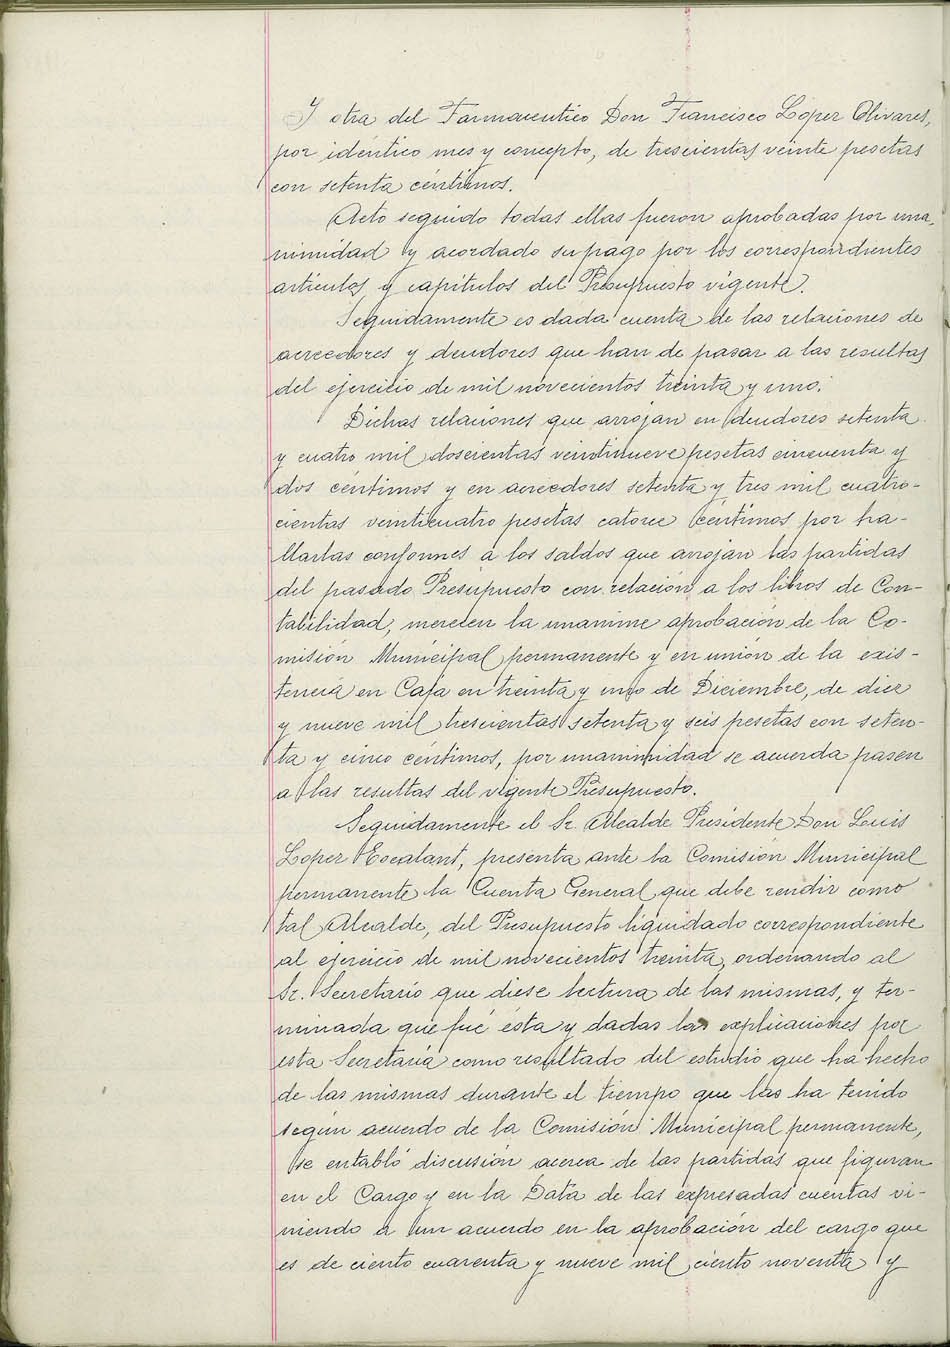 Y otra del Farmaceutico Don Francisco López Olivares,
por idéntico mes y concepto, de trescientas veinte pesetas
con setenta céntimos.
Acto seguido todas ellas fueron aprobadas por una-
nimidad y acordado su pago por los correspondientes
artículos y capítulos del Presupuesto vigente.
Seguidamente es dada cuenta de las relaciones de
acreedores y deudores que han de pasar a las resultas
del ejercicio de mil novecientos treinta y uno.
Dichas relaciones que arrojan en deudores setenta
y cuatro mil doscientas veintinueve pesetas cincuenta y
dos céntimos y en acreedores setenta y tres mil cuatro-
cientas veinticuatro pesetas catorce céntimos por ha-
llarlas conformes a los saldos que arrojan las partidas
del pasado Presupuesto con relación a los libros de Con-
tabilidad, merecen la unanime aprobación de la Co-
misión Municipal permanente y en unión de la exis-
tencia en Caja en treinta y uno de Diciembre, de diez
y nueve mil trescientas setenta y seis pesetas con seten-
ta y cinco céntimos, por unanimidad se acuerda pasen
a las resultas del vigente Presupuesto.
Seguidamente el Sr. Alcalde Presidente Don Luis
Lopez Escalant, presenta ante la Comisión Municipal
permanente la Cuenta General que debe rendir como
tal Alcalde, del Presupuesto liquidado correspondiente
al ejercicio de mil novecientos treinta, ordenando al
Sr. Secretario que diese lectura de las mismas, y ter-
minada que fué ésta y dadas las explicaciones por
esta Secretaría como resultado del estudio que ha hecho
de las mismas durante el tiempo que las ha tenido
según acuerdo de la Comisión Municipal permanente,
se entabló discusión acerca de las partidas que figuran
en el Cargo y en la Data de las expresadas cuentas vi-
niendo a un acuerdo en la aprobación del cargo que
es de ciento cuarenta y nueve mil ciento noventa y